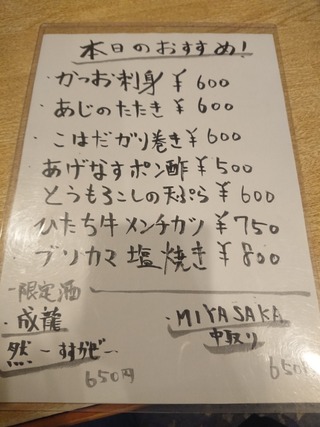 本日のおすすめ!
・かつお刺身 ¥600
・あじのたたき ¥600
・こはだガリ巻き ¥600
あげなすポン酢 ¥500
とうもろこしの天ぷら ¥600
ひたち牛メンチカツ ¥750
ブリカマ塩焼き ¥800
-限定酒
・成龍
然-すすかぜ-
650円
・MIYASAKA
中取り
650